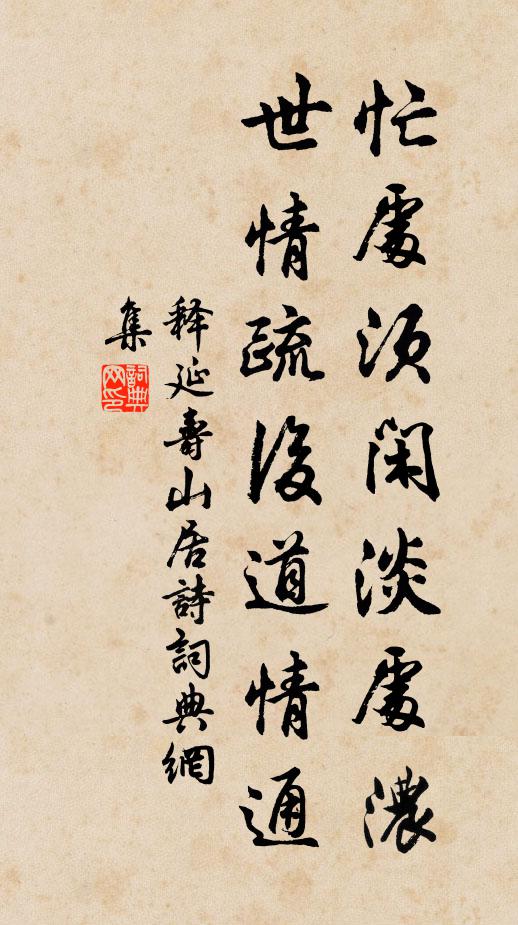 忙處須閑淡處濃
世情疏後道情通
释延壽山居詩詞典網
集
詞典
网印